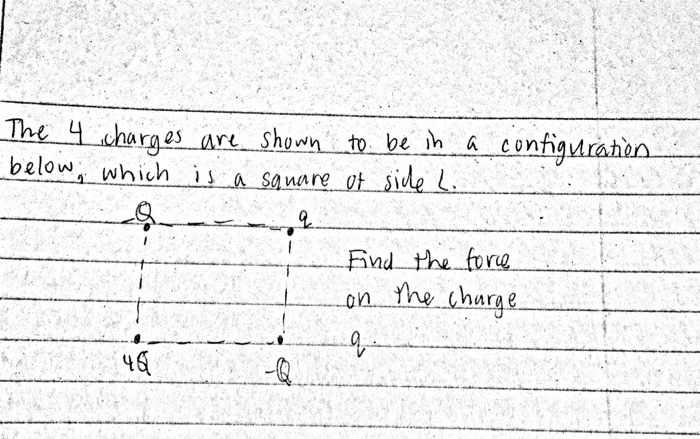 The 4 charges are shown to be in a configuration
below, which is a square of side L.
Q q
Find the force
on the charge
q.
4Q -Q